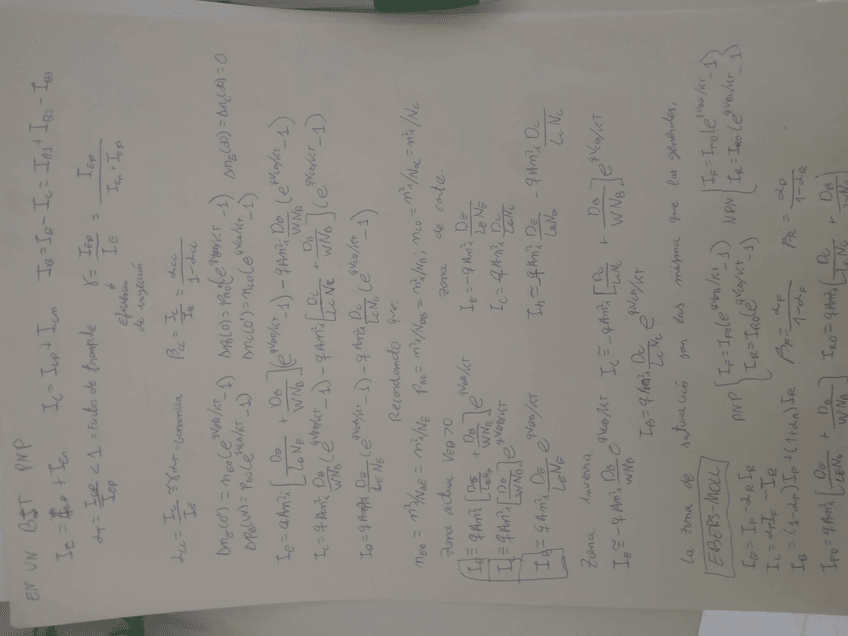 EN UN BJT PNP
I_E = I_Ep + I_En   I_C = I_Cp + I_Cn   I_B = I_E - I_C = I_B1 + I_B2 - I_B3
α_T = I_Cp/I_Ep < 1 = Factor de transporte   γ = I_Ep/I_E = I_Ep/(I_En + I_Ep)
de inyección
α_cc = I_C/I_E = γα_T   β_cc = I_C/I_B = α_cc/(1-α_cc)
Δn_E(0') = n_E0(e^{qV_EB/KT} - 1)   Δp_B(0) = p_B0(e^{qV_EB/KT} - 1)   Δn_E(∞) = Δn_C(∞) = 0
Δp_B(W) = p_B0(e^{qV_CB/KT} - 1)   Δn_C(0') = n_C0(e^{qV_CB/KT} - 1)
I_E = qAn_i²[D_E/(L_E N_E) + D_B/(WN_B)](e^{qV_EB/KT} - 1) - qAn_i² D_B/(WN_B) (e^{qV_CB/KT} - 1)
I_C = qAn_i² D_B/(WN_B) (e^{qV_EB/KT} - 1) - qAn_i²[D_C/(L_C N_C) + D_B/(WN_B)](e^{qV_CB/KT} - 1)
I_B = qAn_i² D_E/(L_E N_E) (e^{qV_EB/KT} - 1) - qAn_i² D_C/(L_C N_C) (e^{qV_CB/KT} - 1)
Recordando que:
n_E0 = n_i²/N_AE = n_i²/N_E   p_B0 = n_i²/N_DB = n_i²/N_B; n_C0 = n_i²/N_AC = n_i²/N_C
Zona activa V_EB>0   zona de corte
I_E ≅ qAn_i²[D_E/(L_E N_E) + D_B/(WN_B)]e^{qV_EB/KT}   I_E = -qAn_i² D_E/(L_E N_E)
I_C ≅ qAn_i²[D_B/(WN_B)]e^{qV_EB/KT}   I_C = qAn_i² D_C/(L_C N_C)
I_B ≅ qAn_i² D_E/(L_E N_E) e^{qV_EB/KT}   I_B ≅ qAn_i² D_E/(L_E N_E) - qAn_i² D_C/(L_C N_C)
Zona inversa.
I_E ≅ -qAn_i² D_B/(WN_B) e^{qV_CB/KT}   I_C ≅ -qAn_i²[D_C/(L_C N_C) + D_B/(WN_B)]e^{qV_CB/KT}
I_B = qAn_i² D_C/(L_C N_C) e^{qV_CB/KT}
La zona de saturación son las misma que las generales.
EBERS-MOLL
PNP { I_F = I_F0(e^{qV_EB/KT} - 1)   NPN { I_F = I_F0(e^{qV_BE/KT} - 1)
I_R = I_R0(e^{qV_CB/KT} - 1)   I_R = I_R0(e^{qV_BC/KT} - 1)
I_E = I_F - α_R I_R
I_C = α_F I_F - I_R
I_B = (1-α_F)I_F + (1-α_R)I_R   β_F = α_F/(1-α_F)   β_R = α_R/(1-α_R)
I_F0 = qAn_i²[D_E/(L_E N_E) + D_B/(WN_B)]   I_R0 = qAn_i²[D_C/(L_C N_C) + D_B/(WN_B)]